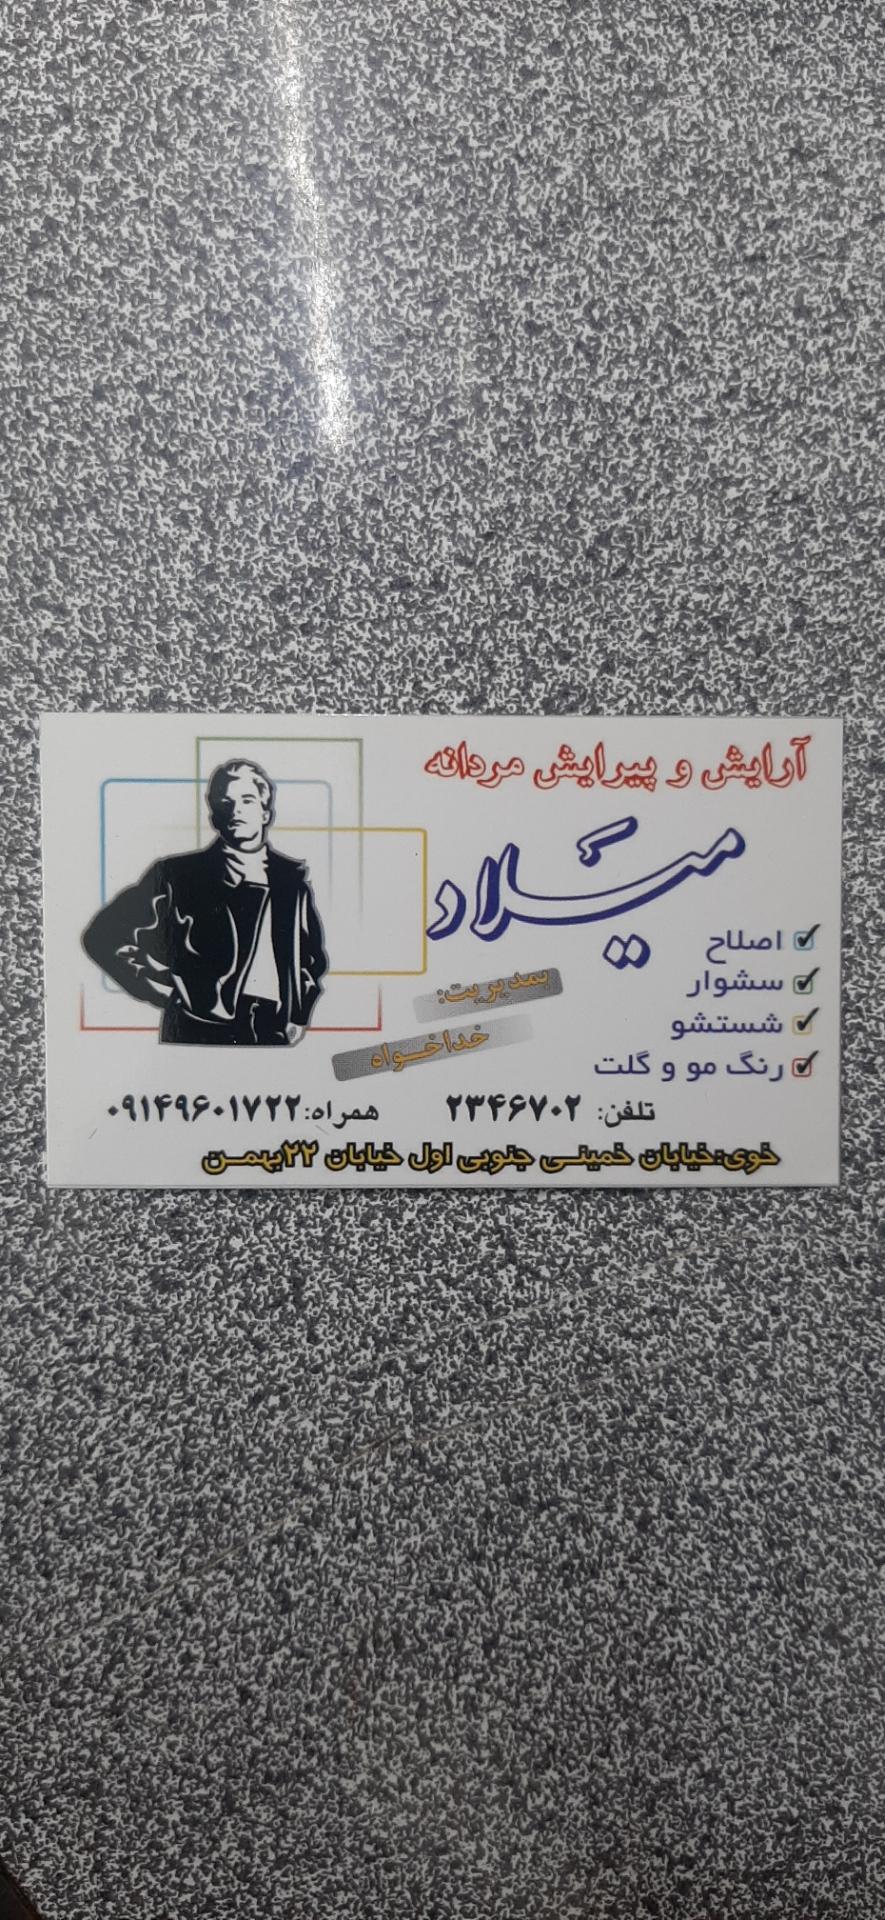 آرایش و پیرایش مردانه
میلاد
اصلاح
سشوار
شستشو
رنگ مو و گلت
بمدیریت:
خداخواه
تلفن: ۲۳۴۶۷۰۲ همراه:۰۹۱۴۹۶۰۱۷۲۲
خوی:خیابان خمینی جنوبی اول خیابان ۲۲بهمن